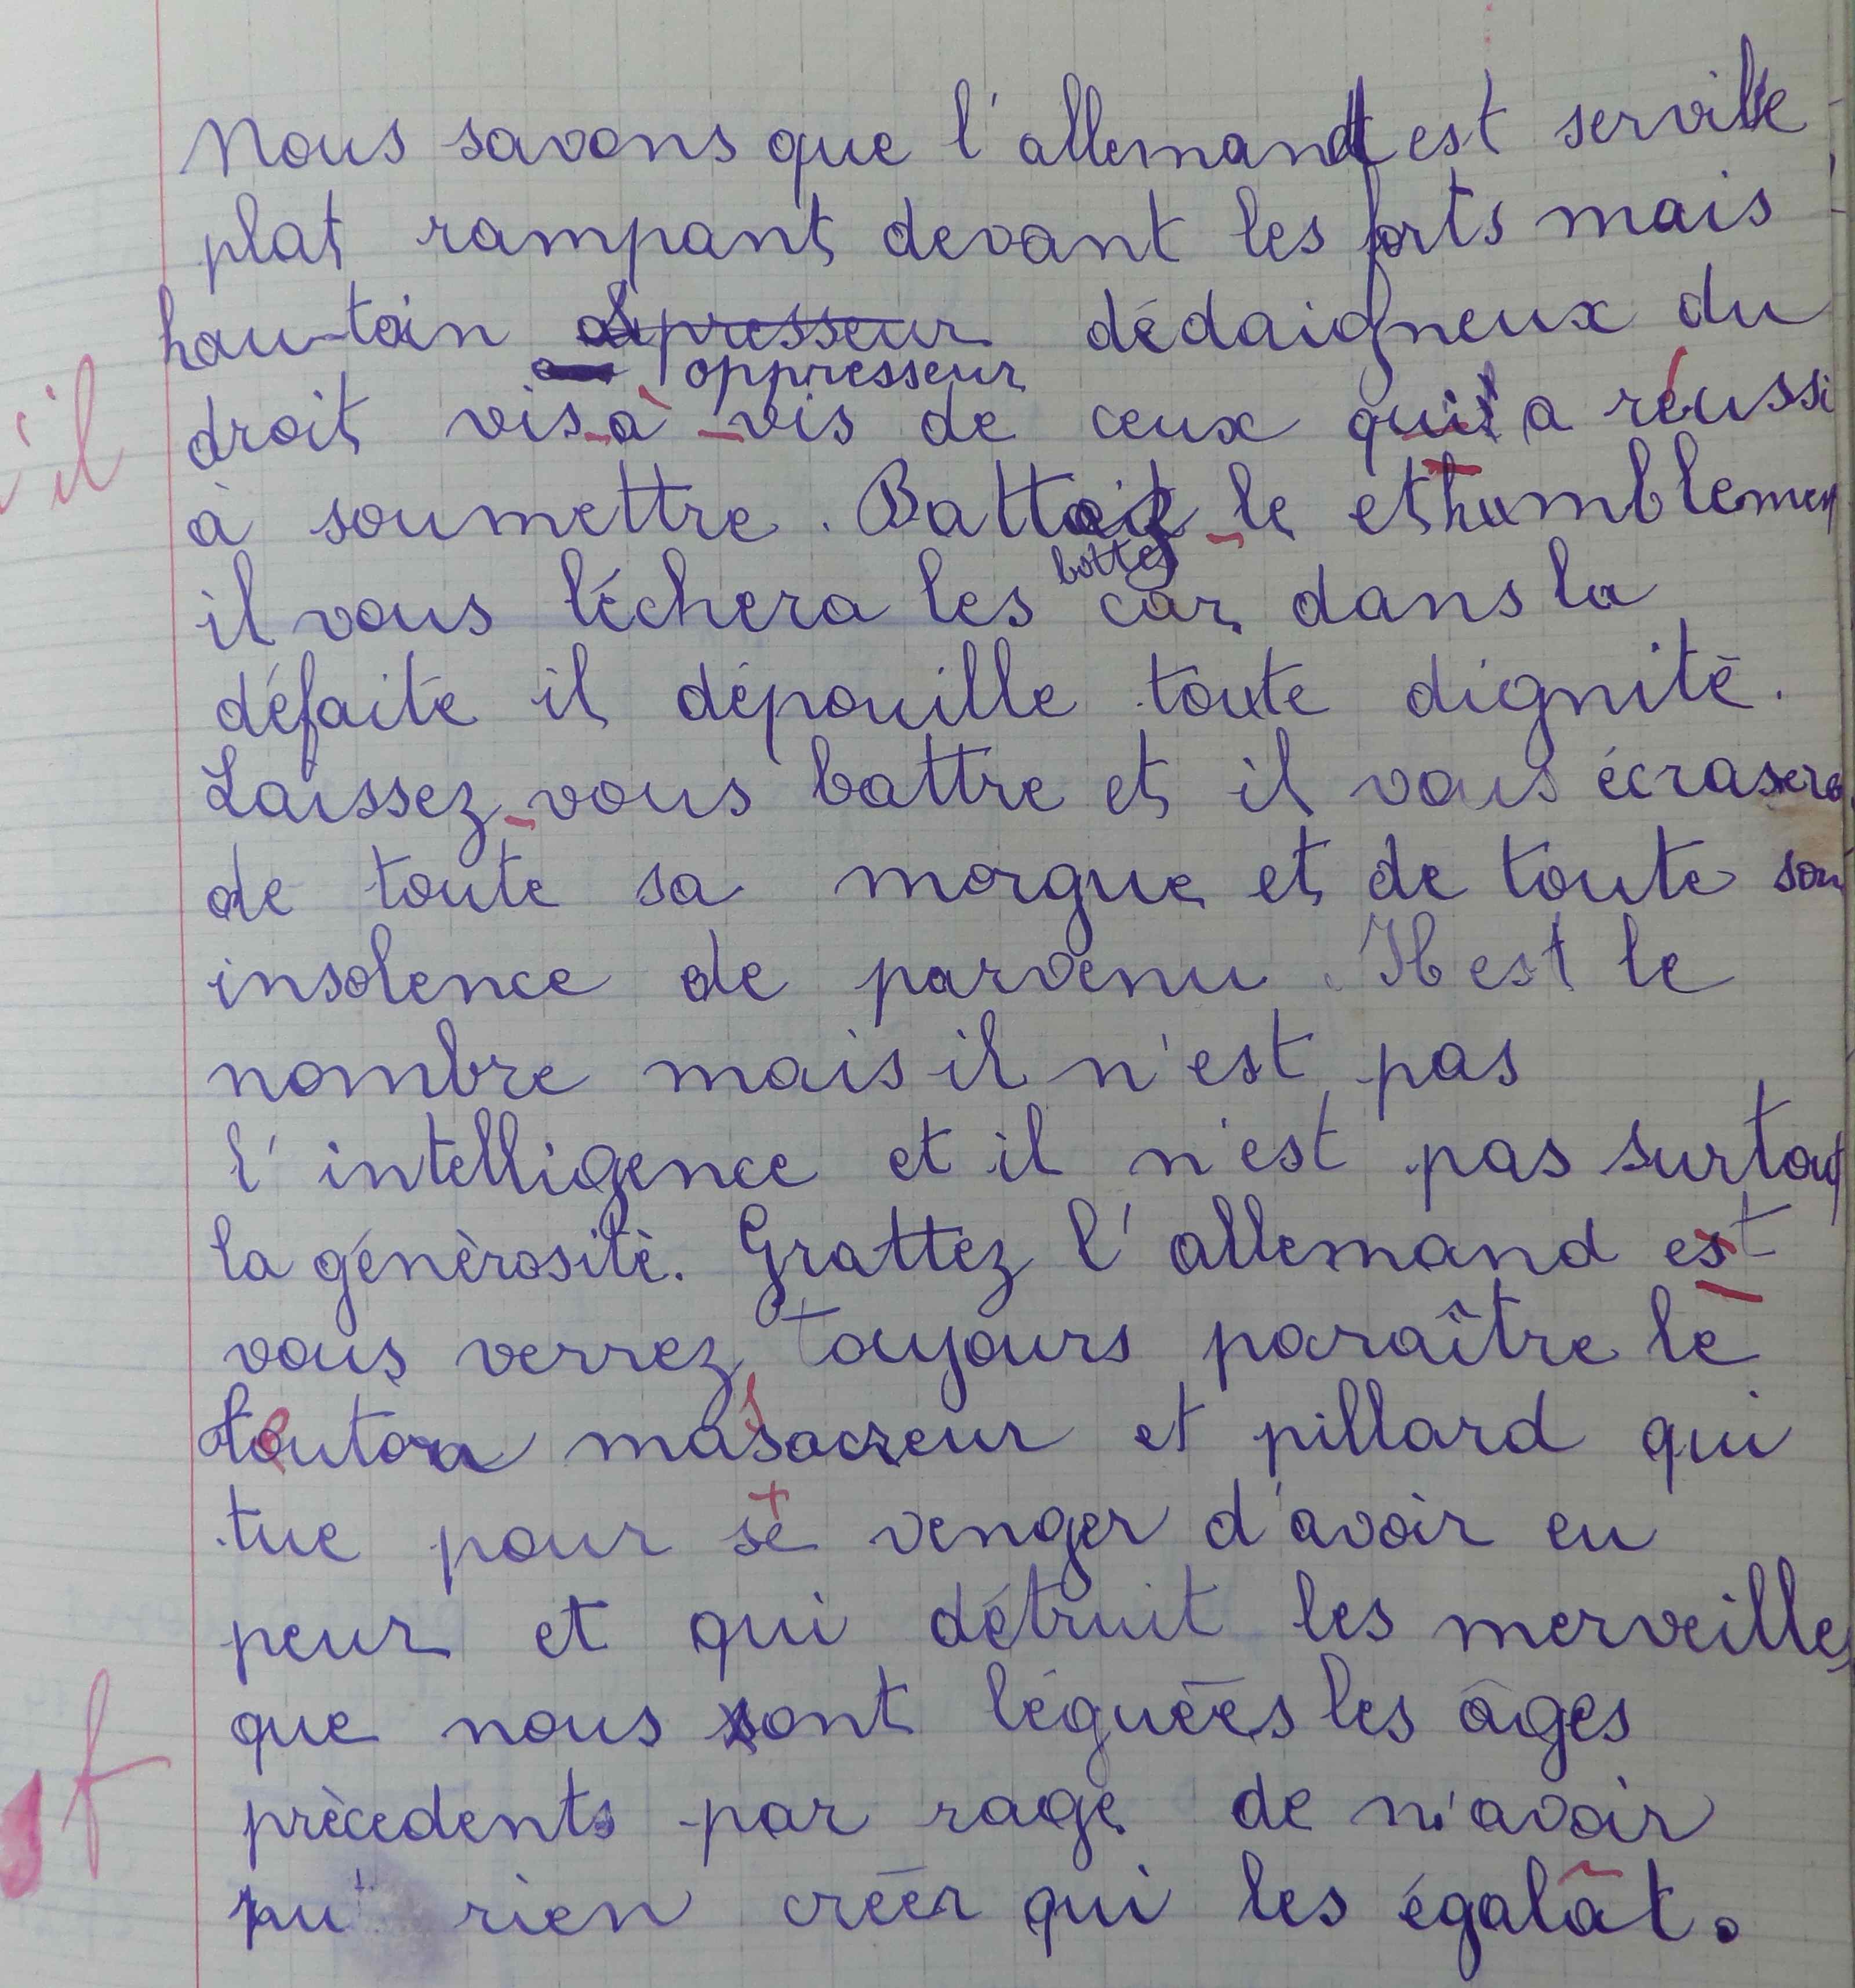 Nous savons que l'allemand est servile
plat rampant devant les forts mais
hautain opresseur dédaigneux du
oppresseur
droit vis-à-vis de ceux qu'il a réussi
il
à soumettre. Battez-le et humblement
bottes
il vous léchera les car dans la
défaite il dépouille toute dignité.
Laissez-vous battre et il vous écrasera
de toute sa morgue et de toute son
insolence de parvenu. Il est le
nombre mais il n'est pas
l'intelligence et il n'est pas surtout
la générosité. Grattez l'allemand est
vous verrez toujours paraître le
teuton massacreur et pillard qui
tue pour se venger d'avoir eu
peur et qui détruit les merveilles
que nous sont léguées les âges
précedents par rage de n'avoir
pu rien créer qui les égalât.